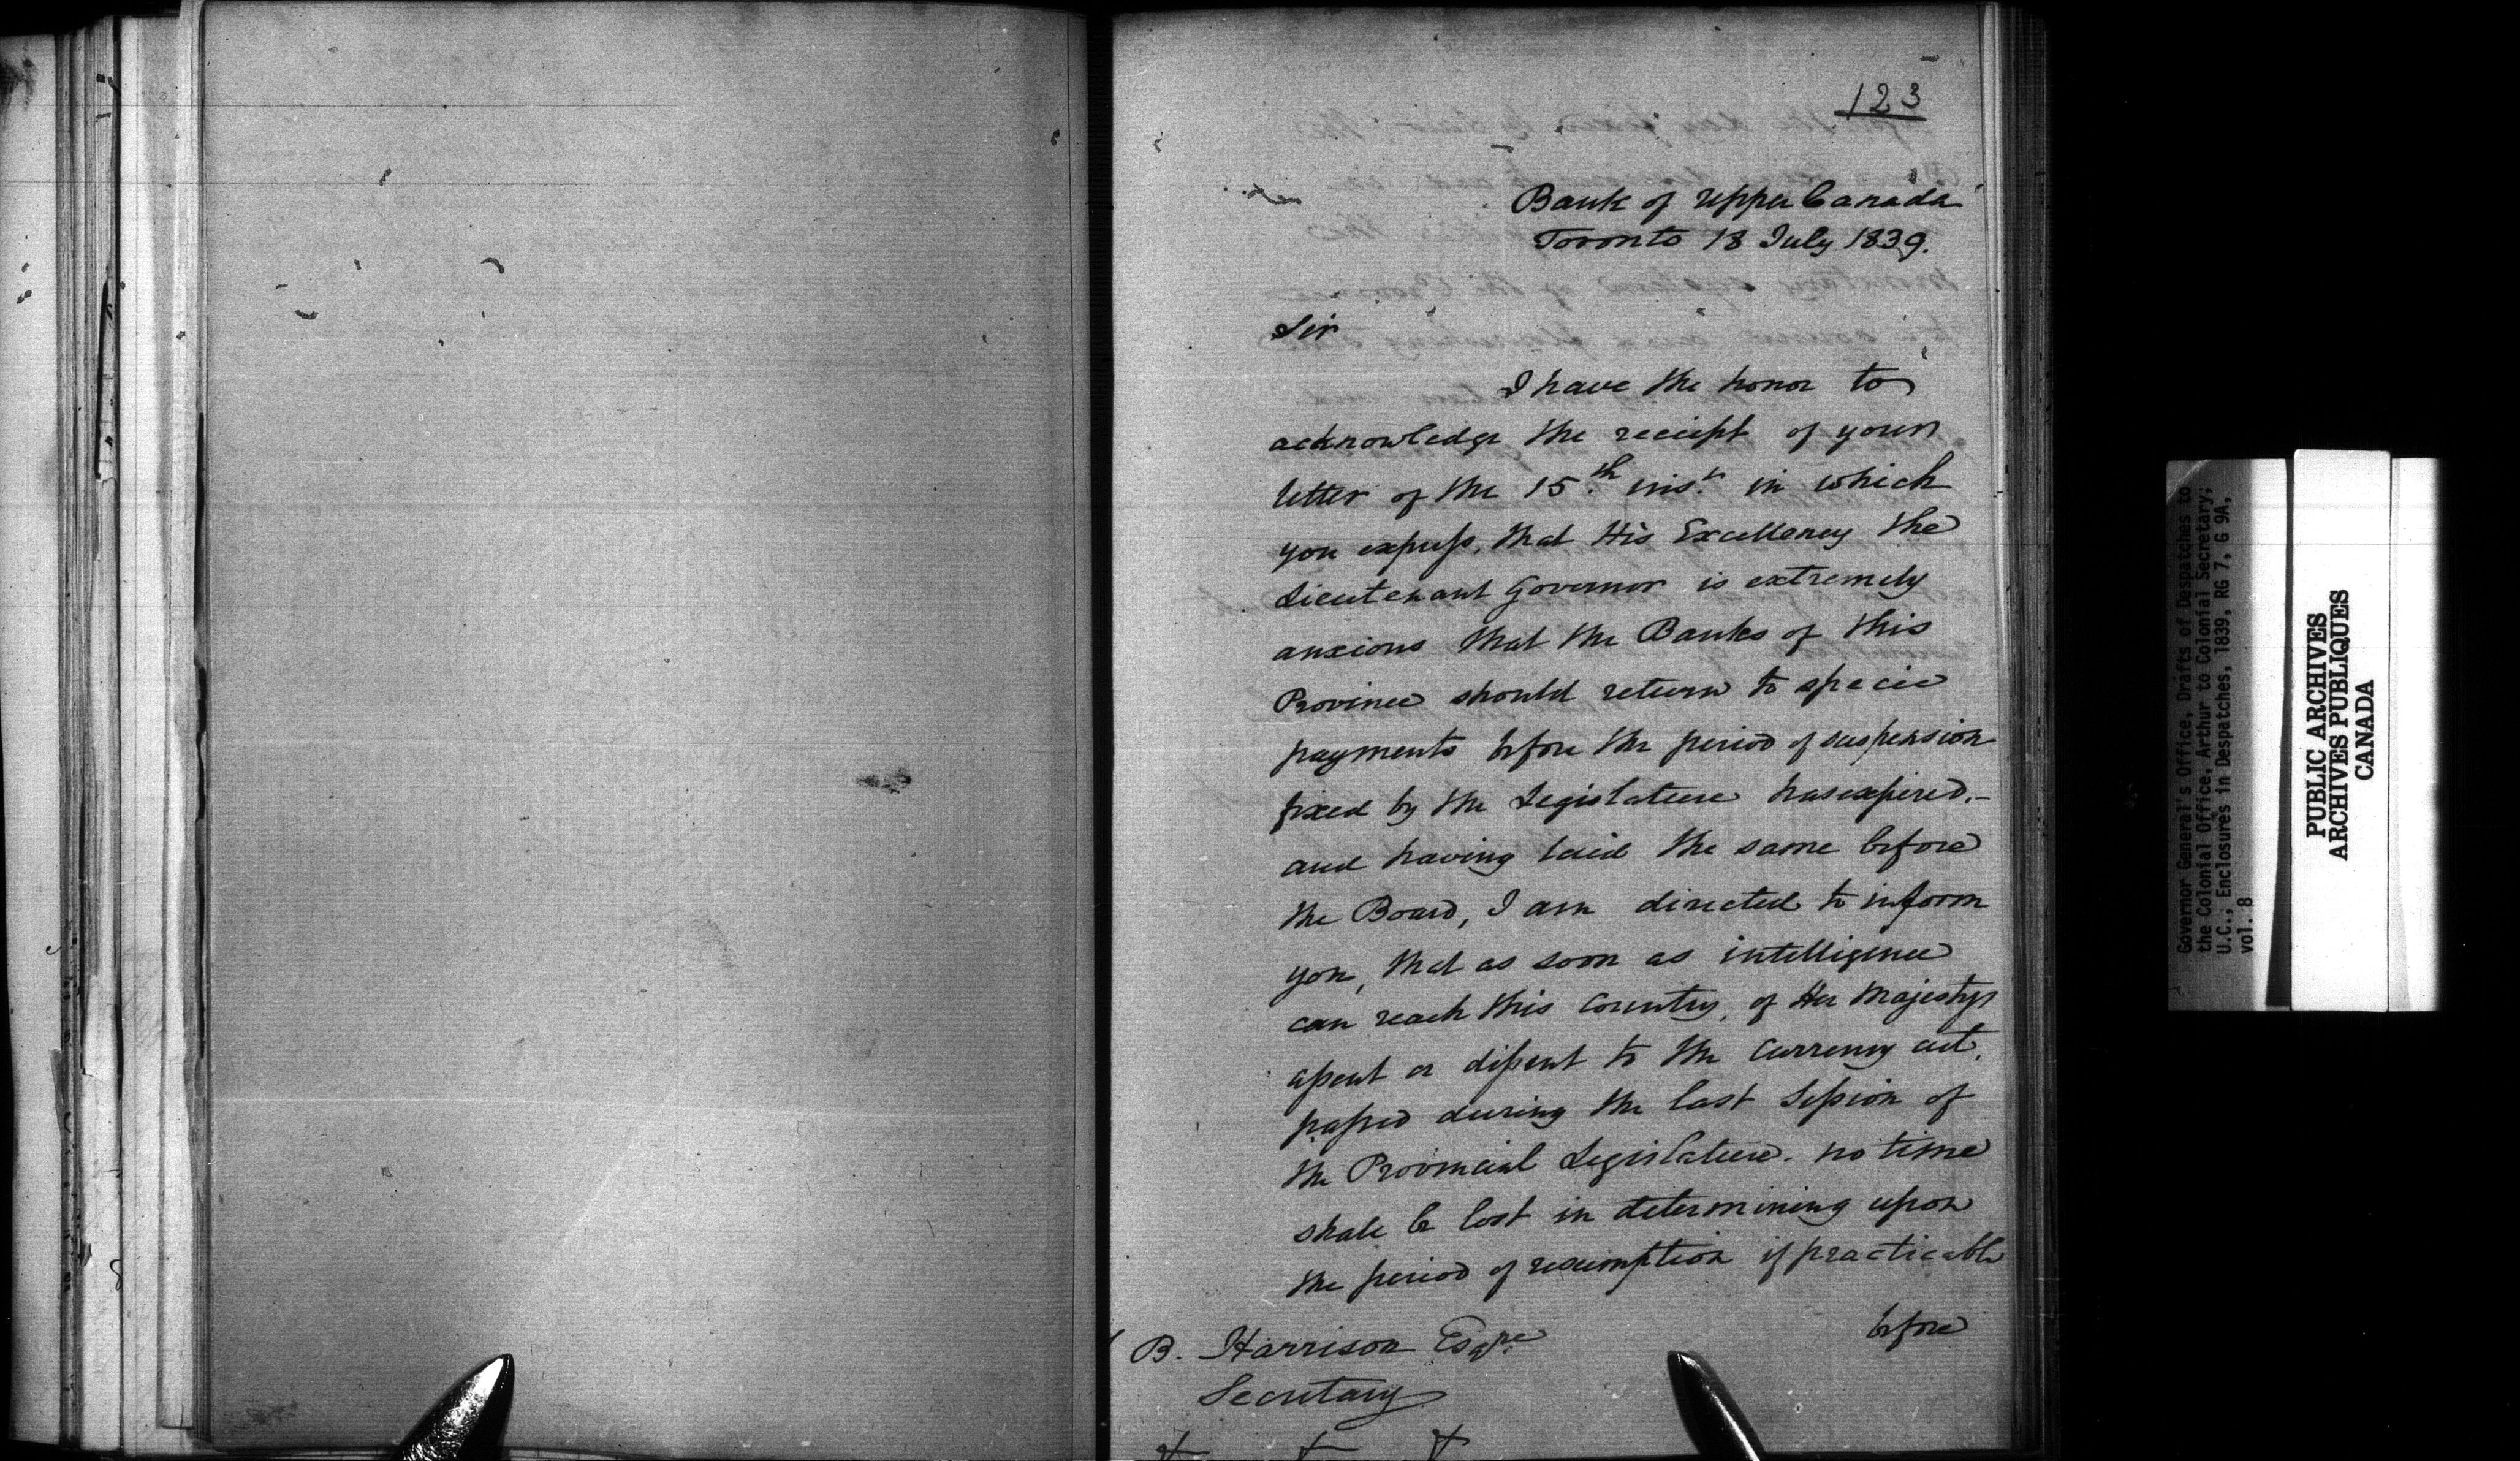 123
Bank of Upper Canada
Toronto 18 July 1839.
Sir
I have the honor to
acknowledge the receipt of your
letter of the 15th inst. in which
you express, that His Excellency the
Lieutenant Governor is extremely
anxious that the Banks of this
Province should return to specie
payments before the period of suspension
fixed by the Legislature has expired,-
and having laid the same before
the Board, I am directed to inform
you, that as soon as intelligence
can reach this Country, of Her Majestys
assent or dissent to the Currency act,
passed during the last Session of
the Provincial Legislature. no time
shall be lost in determining upon
the period of resumption if practicable
before
B. Harrison Esqre.
Secretary
Governor General's Office, Drafts of Despatches to
the Colonial Office, Arthur to Colonial Secretary;
U.C., Enclosures in Despatches, 1839, RG 7, G 9A,
vol. 8
PUBLIC ARCHIVES
ARCHIVES PUBLIQUES
CANADA